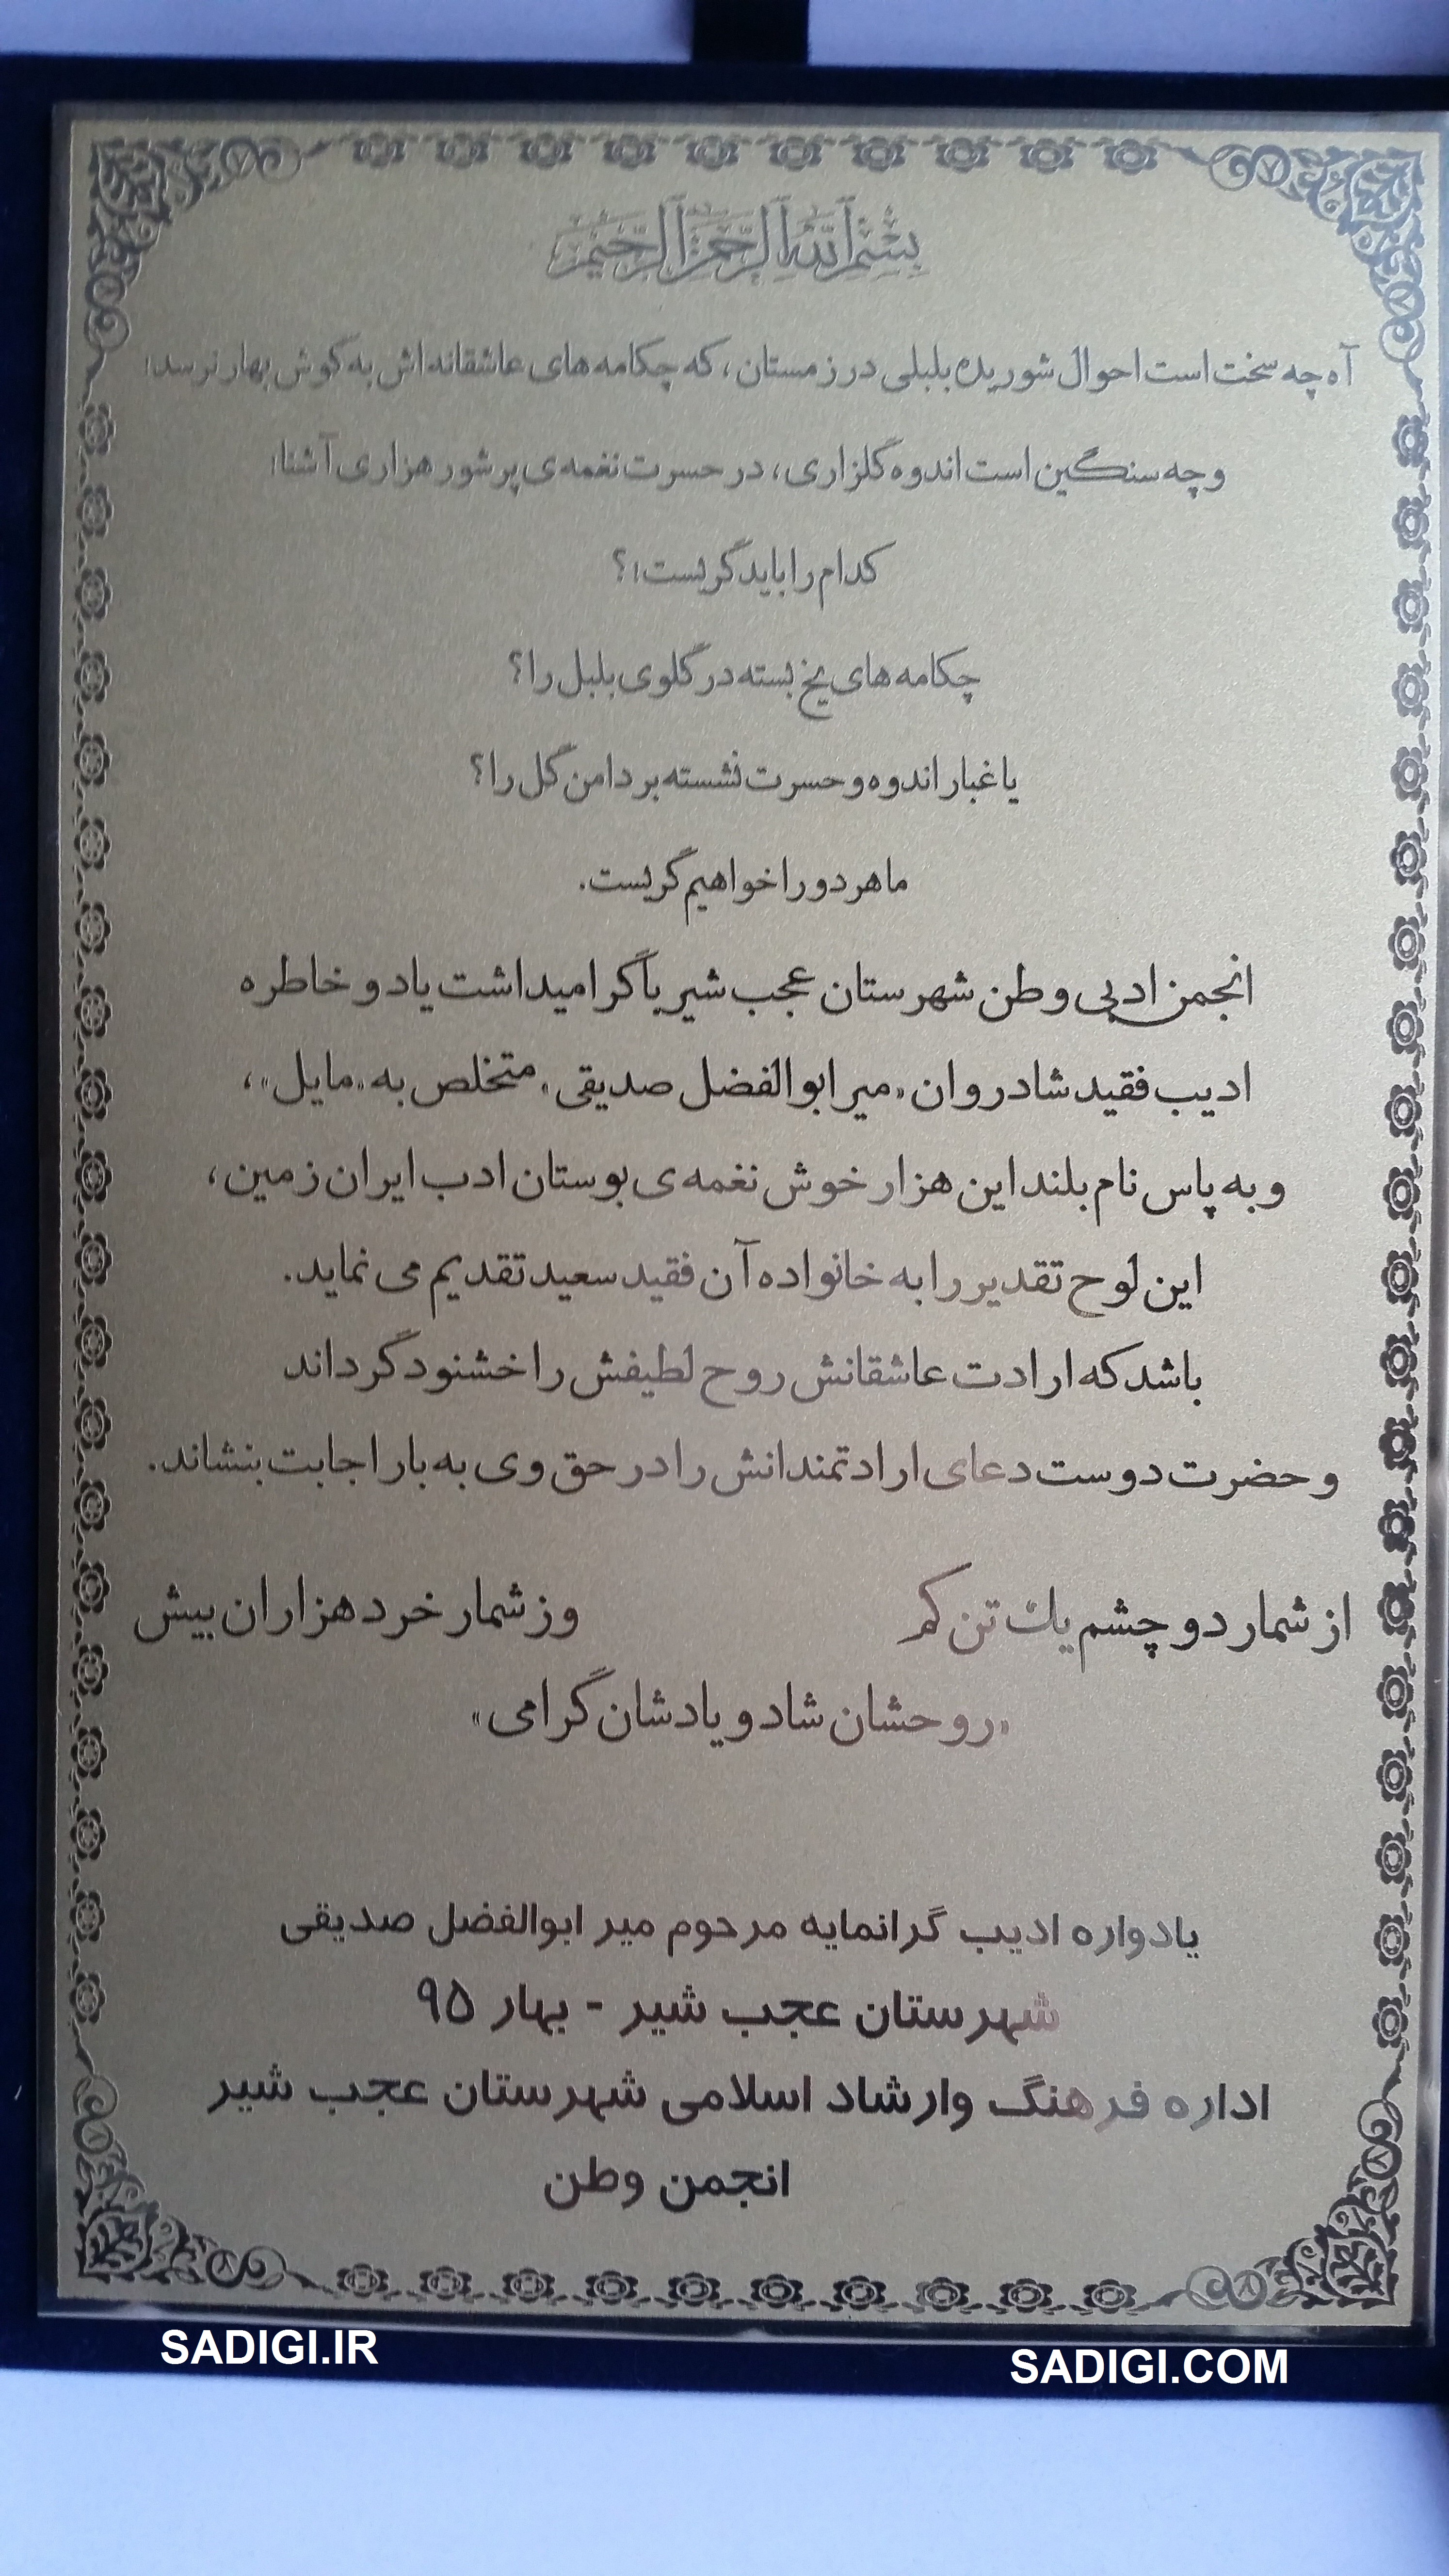 بسم الله الرحمن الرحیم
آه چه سخت است احوال شوریده بلبلی در زمستان، که چکامه های عاشقانه اش به گوش بهار نرسد!
و چه سنگین است اندوه گلزاری، در حسرت نغمه ی پر شور هزاری آشنا!
کدام را باید گریست!؟
چکامه های یخ بسته در گلوی بلبل را؟
یا غبار اندوه و حسرت نشسته بر دامن گل را؟
ما هر دو را خواهیم گریست.
انجمن ادبی وطن شهرستان عجب شیر با گرامیداشت یاد و خاطره
ادیب فقید شادروان «میر ابوالفضل صدیقی» متخلص به «مایل»،
و به پاس نام بلند این هزار خوش نغمه ی بوستان ادب ایران زمین،
این لوح تقدیر را به خانواده آن فقید سعید تقدیم می نماید.
باشد که ارادت عاشقانش روح لطیفش را خشنود گرداند
و حضرت دوست دعای ارادتمندانش را در حق وی به بار اجابت بنشاند.
از شمار دو چشم یك تن کم وز شمار خرد هزاران بیش
«روحشان شاد و یادشان گرامی»
یادواره ادیب گرانمایه مرحوم میر ابوالفضل صدیقی
شهرستان عجب شیر - بهار ۹۵
اداره فرهنگ وارشاد اسلامی شهرستان عجب شیر
انجمن وطن
SADIGI.IR
SADIGI.COM